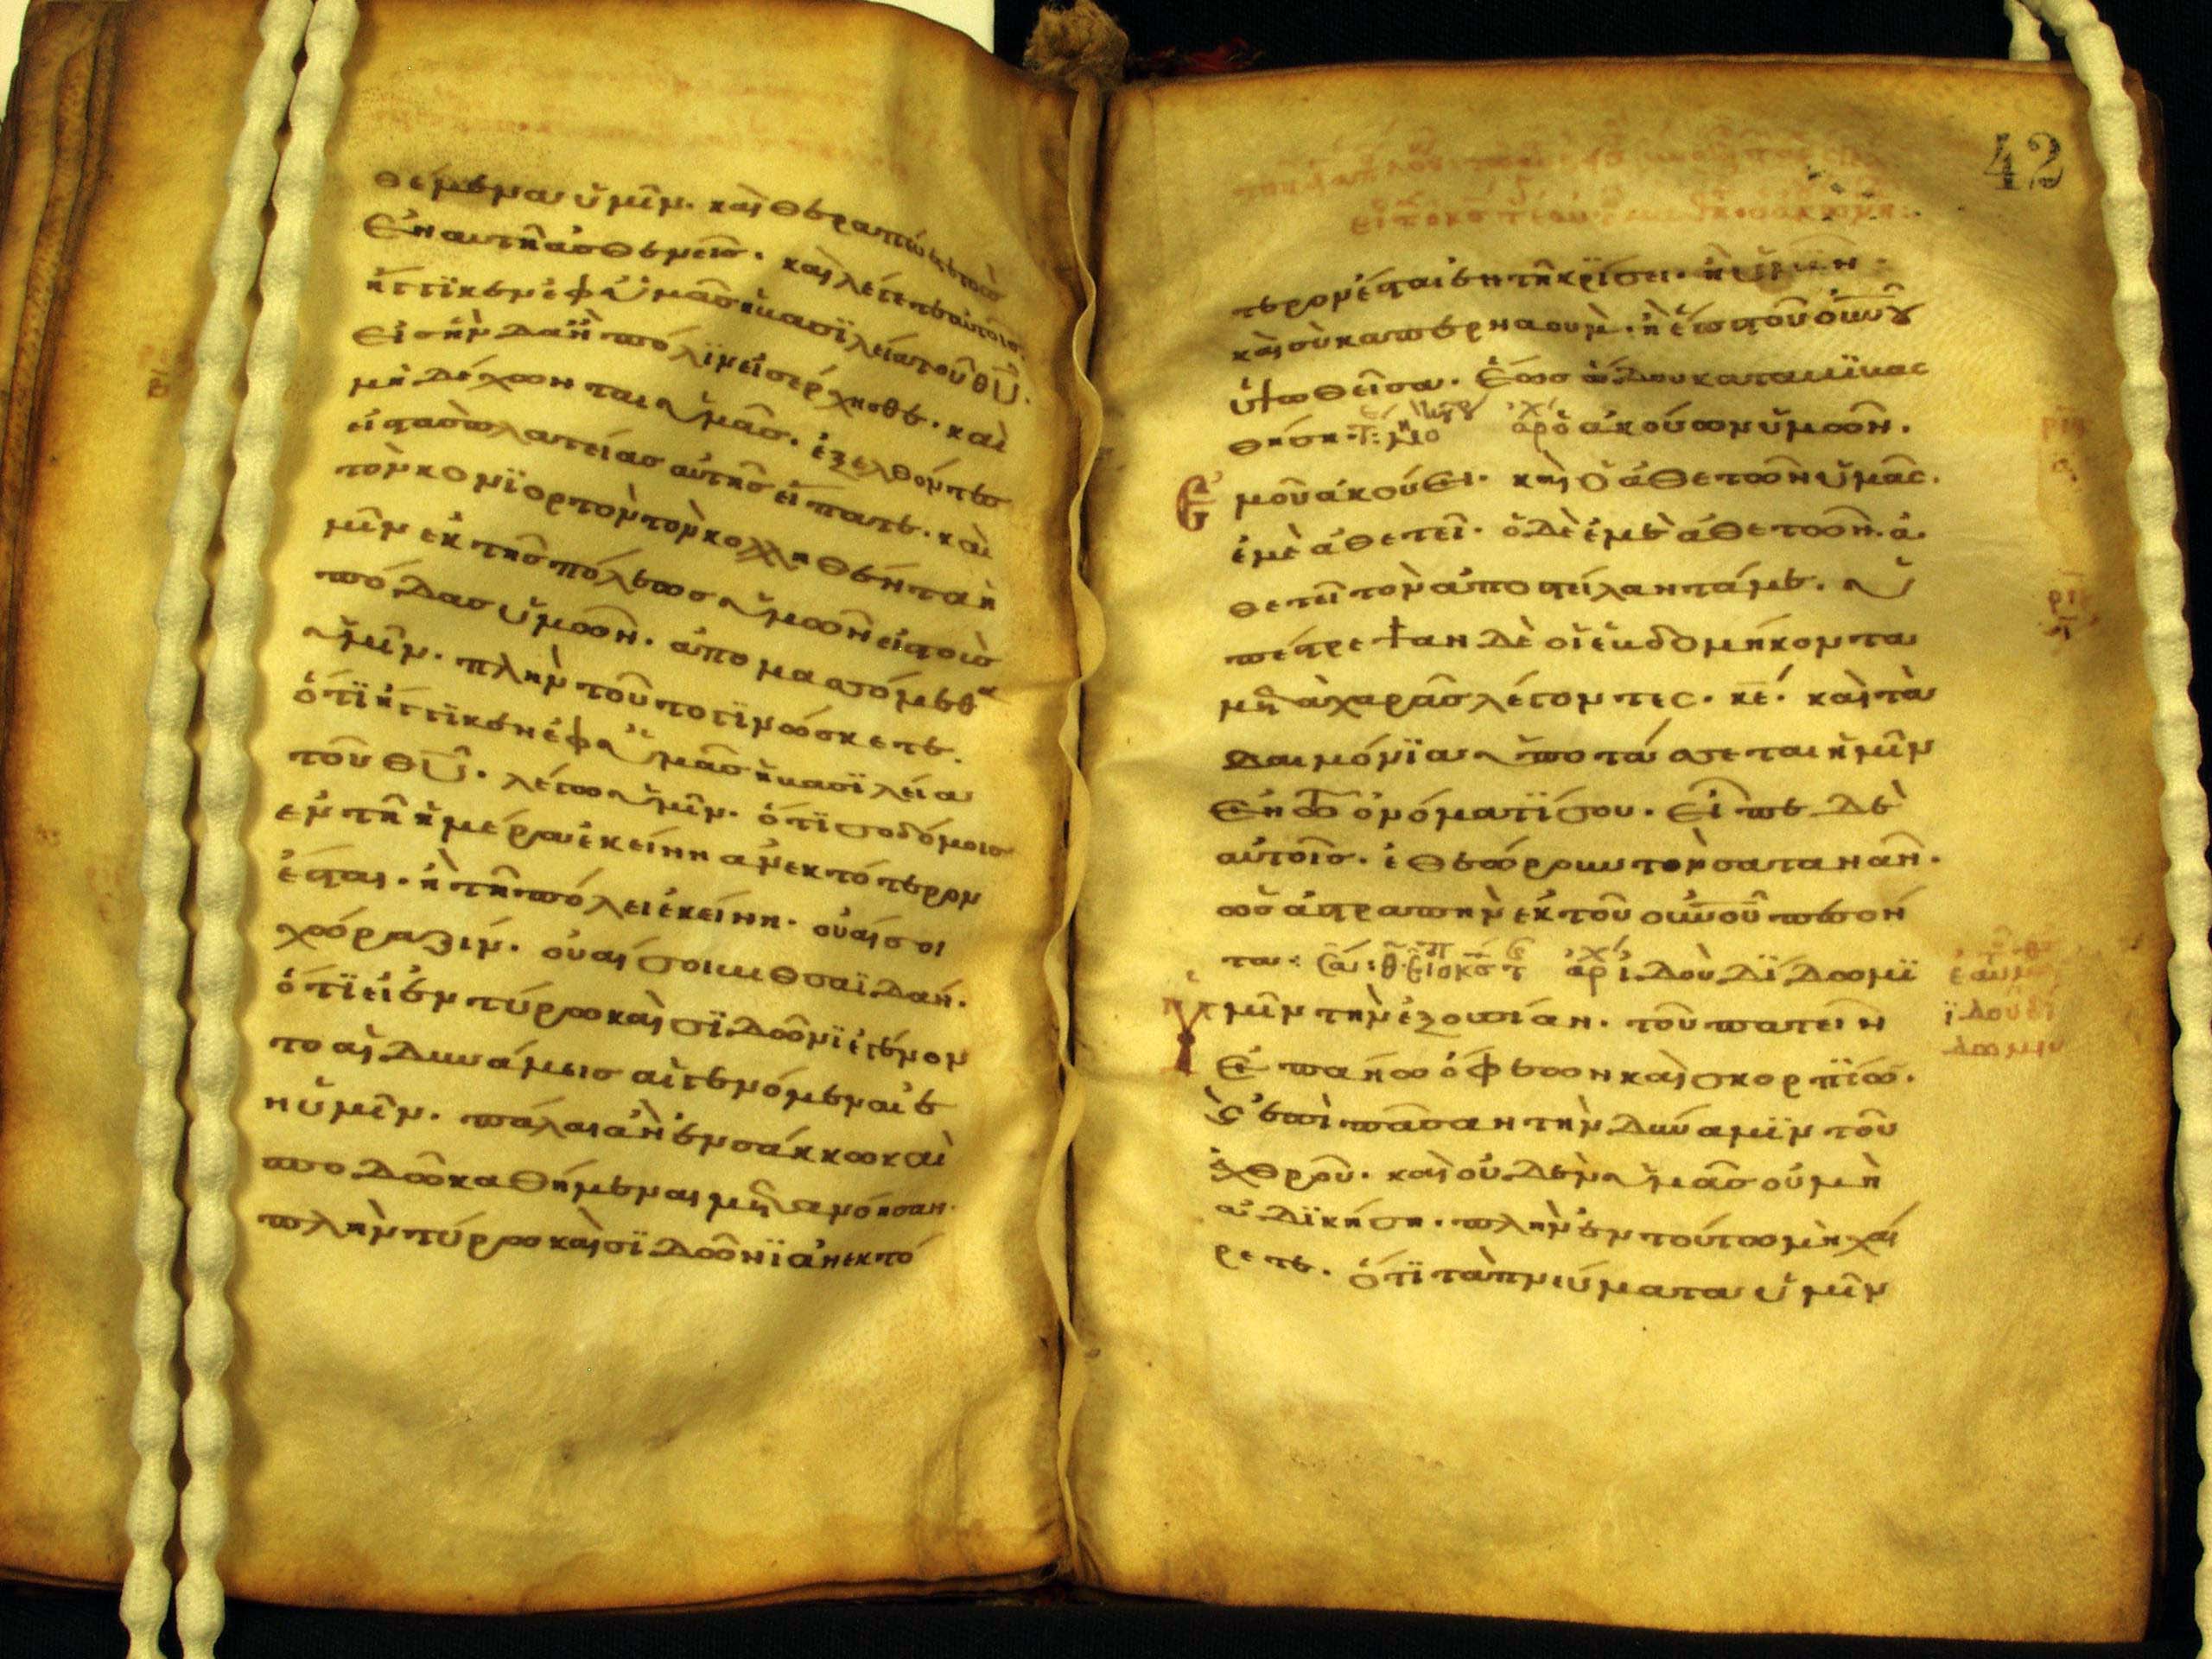 θέμενα ὑμῖν· καὶ θεραπεύετε τοὺς
ἐν αυτῆ ἀσθενεῖς· καὶ λέγετε αὐτοῖς·
ἤγγϊκεν ἐφ ὑμᾶς ἡ βασϊλεία τοῦ θῦ·
εἰς ἣν δ ἂν πόλϊν εἰσέρχησθε· καὶ
μὴ δέχωνται ὑμᾶς· ἐξελθόντες
εἰς τὰσ πλατείας αὐτῆς εἴπατε· καὶ
τὸν κονϊορτὸν τὸν κολληθέντα ἡ
μῖν ἐκ τῆς πόλεως ὑμῶν εἰς τοὺς
πόδας ὑμῶν· ἀπομασσόμεθα
ὑμῖν· πλὴν τοῦτο γϊνώσκετε·
ὅτϊ ἤγγϊκεν ἐφ ὑμᾶς ἡ βασϊλεία
τοῦ θῦ· λέγω ὑμῖν· ὅτϊ σοδόμοις
ἐν τῆ ἡμέρα ἐκείνη ἀνεκτότερον
ἔσται· ἢ τῆ πόλει ἐκείνη· οὐαί σοι
χώραζιν· οὐαί σοι βηθσαϊδάν·
ὅτϊ εἰ ἐν τύρω καὶ σϊδῶνϊ ἐγένον
το αἱ δυνάμεις αἱ γενόμεναι ἐ
ν ὑμῖν· πάλαι ἂν ἐν σάκκω καὶ
σποδῶ καθήμεναι μετανόησαν·
πλὴν τύρω καὶ σϊδῶνϊ ἀνεκτό
42
τερον ἔσται ἐν τῆ κρίσει· ἢ ὑμῖν·
καὶ σὺ καπερναουμ· ἡ ἕως τοῦ οὐνοῦ
ὑψωθεῖσα· ἕως ἅδου καταβϊβασ
θήση· ὁ ἀκούων ὑμῶν·
ἐμοῦ ἀκούει· καὶ ὁ ἀθετῶν ὑμᾶς·
ἐμὲ ἀθετεῖ· ὁ δὲ ἐμὲ ἀθετῶν· ἀ
θετεῖ τὸν ἀποστείλαντά με· ὑ
πέστρεψαν δὲ οἱ ἑβδομήκοντα
μετὰ χαρᾶς λέγοντες· κε· καὶ τὰ
δαιμόνϊα ὑποτάσσεται ἡμῖν
ἐν τῶ ὀνόματϊ σου· εἶπε δὲ
αὐτοῖς· ἐθεώρουν τὸν σατανᾶν·
ὡς ἀστραπὴν ἐκ τοῦ οὐνοῦ πεσόν
τα: ἰδοὺ δϊδωμϊ
ὑμῖν τὴν ἐξουσίαν· τοῦ πατεῖν
ἐπάνω ὄφεων καὶ σκορπϊων·
καὶ ἐπὶ πᾶσαν τὴν δύναμϊν τοῦ
ἐχθροῦ· καὶ οὐδὲν ὑμᾶς οὐ μὴ
ἀδϊκήση· πλὴν ἐν τούτω μὴ χαί
ρετε· ὅτϊ τὰ πνεύματα ὑμῖν